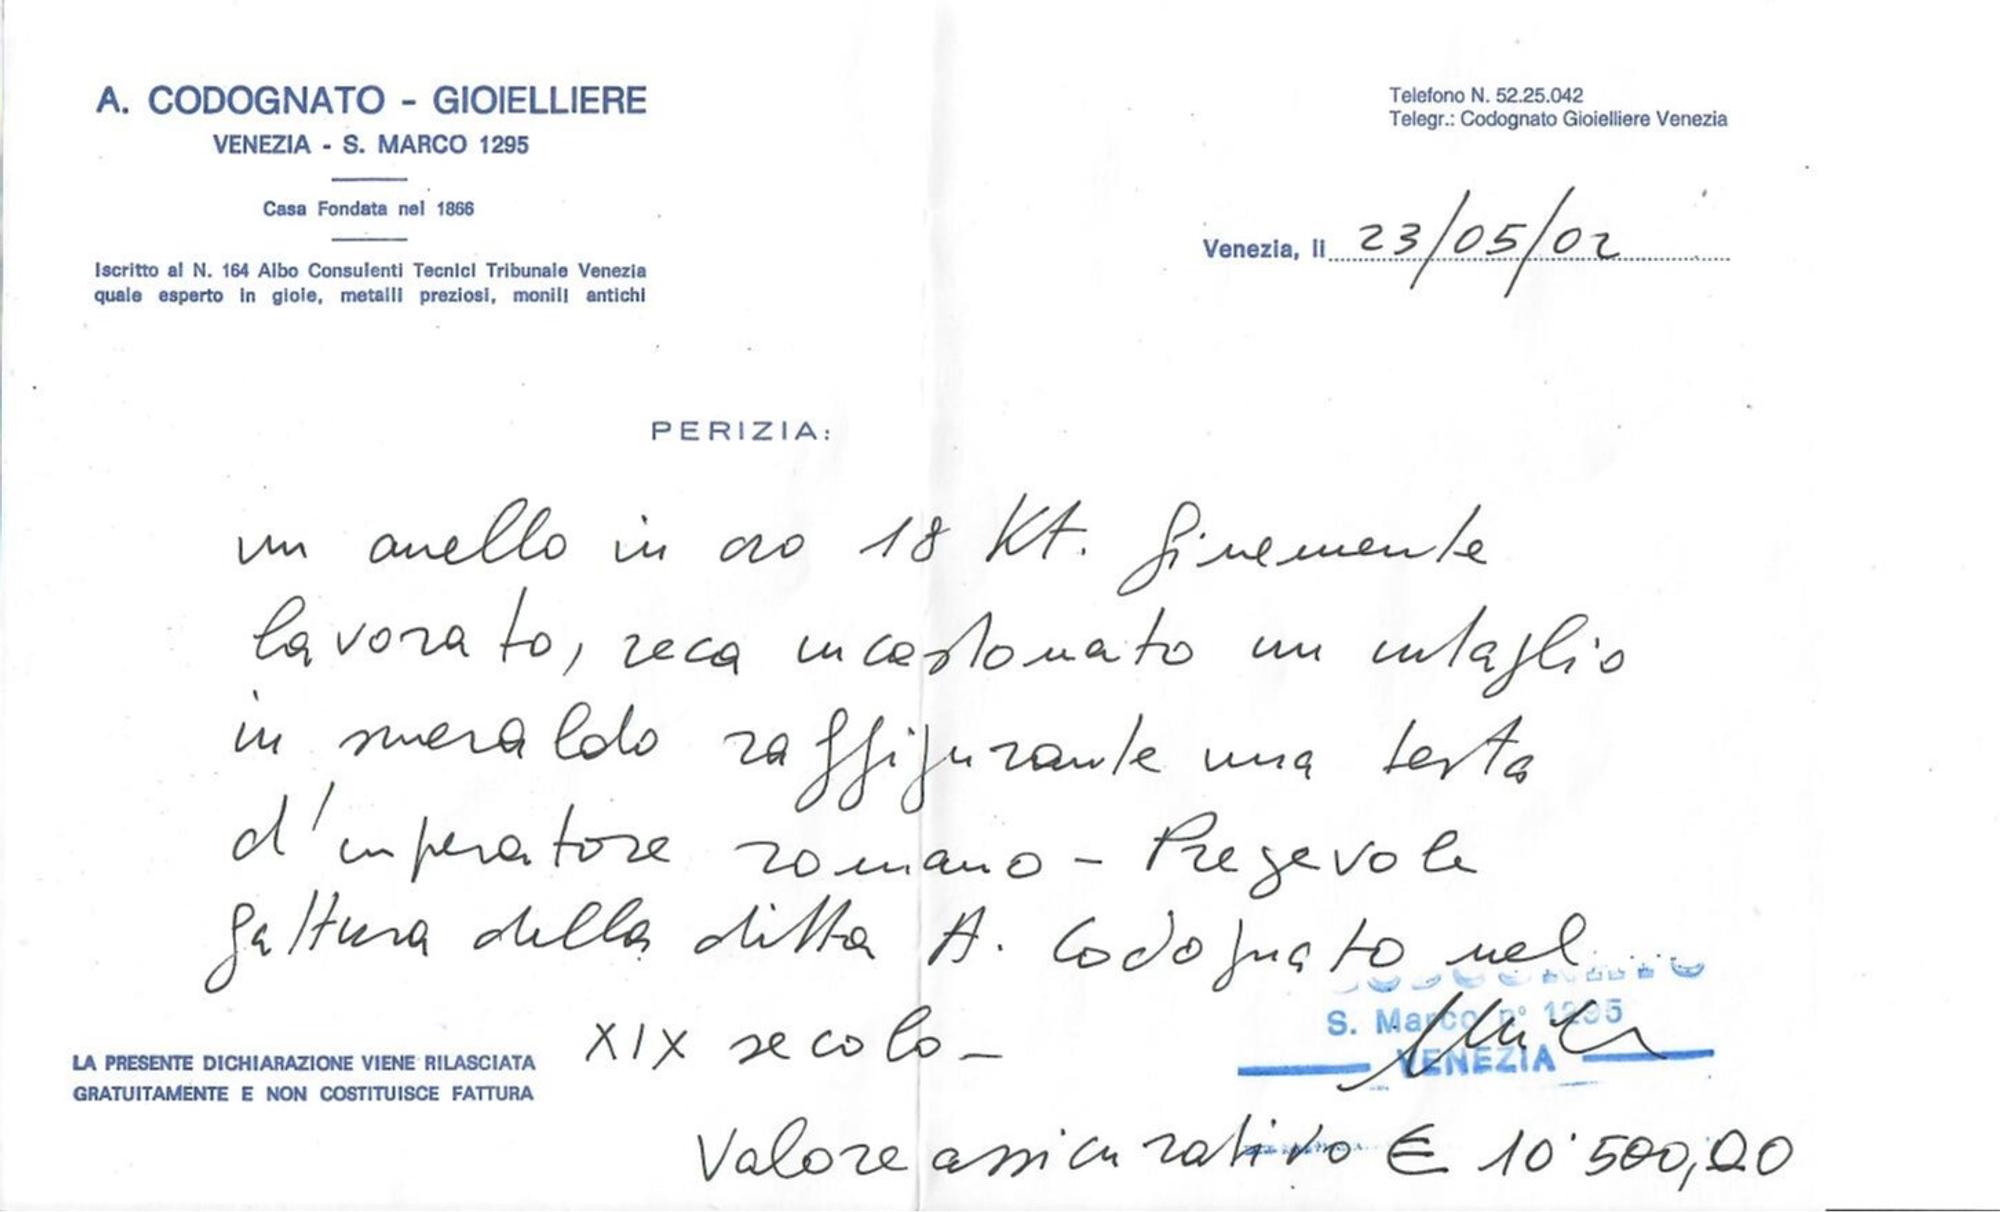 A. CODOGNATO - GIOIELLIERE
VENEZIA - S. MARCO 1295
Casa Fondata nel 1866
Iscritto al N. 164 Albo Consulenti Tecnici Tribunale Venezia
quale esperto in gioie, metalli preziosi, monili antichi
Telefono N. 52.25.042
Telegr.: Codognato Gioielliere Venezia
Venezia, li 23/05/02
PERIZIA:
un anello in oro 18 Kt. finemente
lavorato, reca incastonato un intaglio
in smeraldo raffigurante una testa
d'imperatore romano - Pregevole
fattura della ditta A. Codognato nel
XIX secolo -
S. Marco n° 1295
VENEZIA
LA PRESENTE DICHIARAZIONE VIENE RILASCIATA
GRATUITAMENTE E NON COSTITUISCE FATTURA
Valore assicurativo € 10'500,00